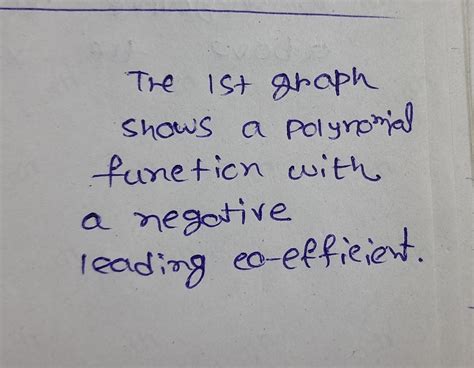 The 1st graph
shows a polynomial
function with
a negative
leading co-efficient.